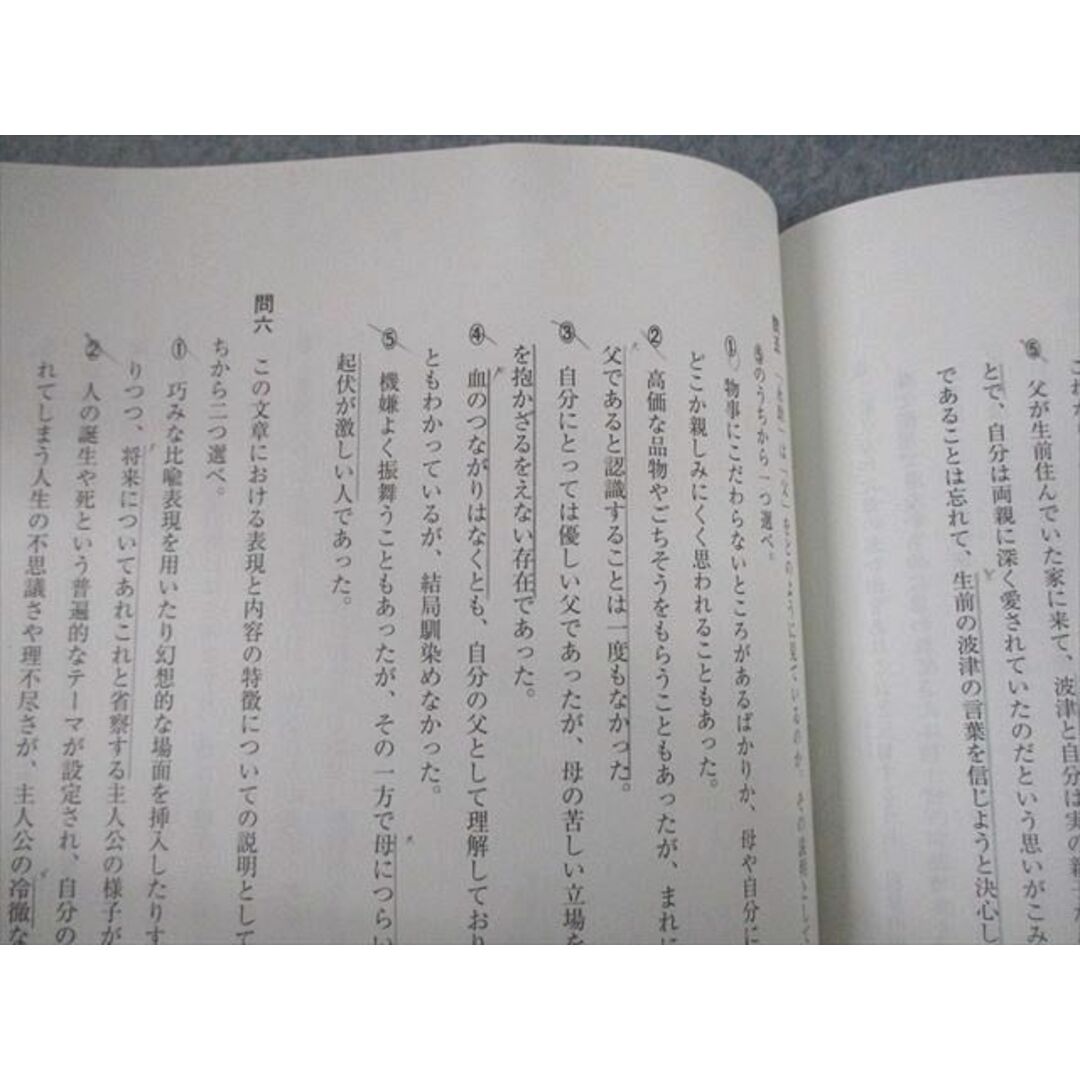 ⑤ 父が生前住んでいた家に来て、波津と自分は実の親
とで、自分は両親に深く愛されていたのだという思いがこみ
であることは忘れて、生前の波津の言葉を信じようと決心し
⑤のうちから一つ選べ。
① 物事にこだわらないところがあるばかりか、母や自分に
どこか親しみにくく思われることもあった。
② 高価な品物やごちそうをもらうこともあったが、まれに
父であると認識することは一度もなかった。
③ 自分にとっては優しい父であったが、母の苦しい立場を
を抱かざるをえない存在であった。
④ 血のつながりはなくとも、自分の父として理解しており
ともわかっているが、結局馴染めなかった。
⑤ 機嫌よく振舞うこともあったが、その一方で母につらい
起伏が激しい人であった。
問六 この文章における表現と内容の特徴についての説明として
ちから二つ選べ。
① 巧みな比喩表現を用いたり幻想的な場面を挿入したりす
りつつ、将来についてあれこれと省察する主人公の様子が
② 人の誕生や死という普遍的なテーマが設定され、自分の
れてしまう人生の不思議さや理不尽さが、主人公の冷徹な